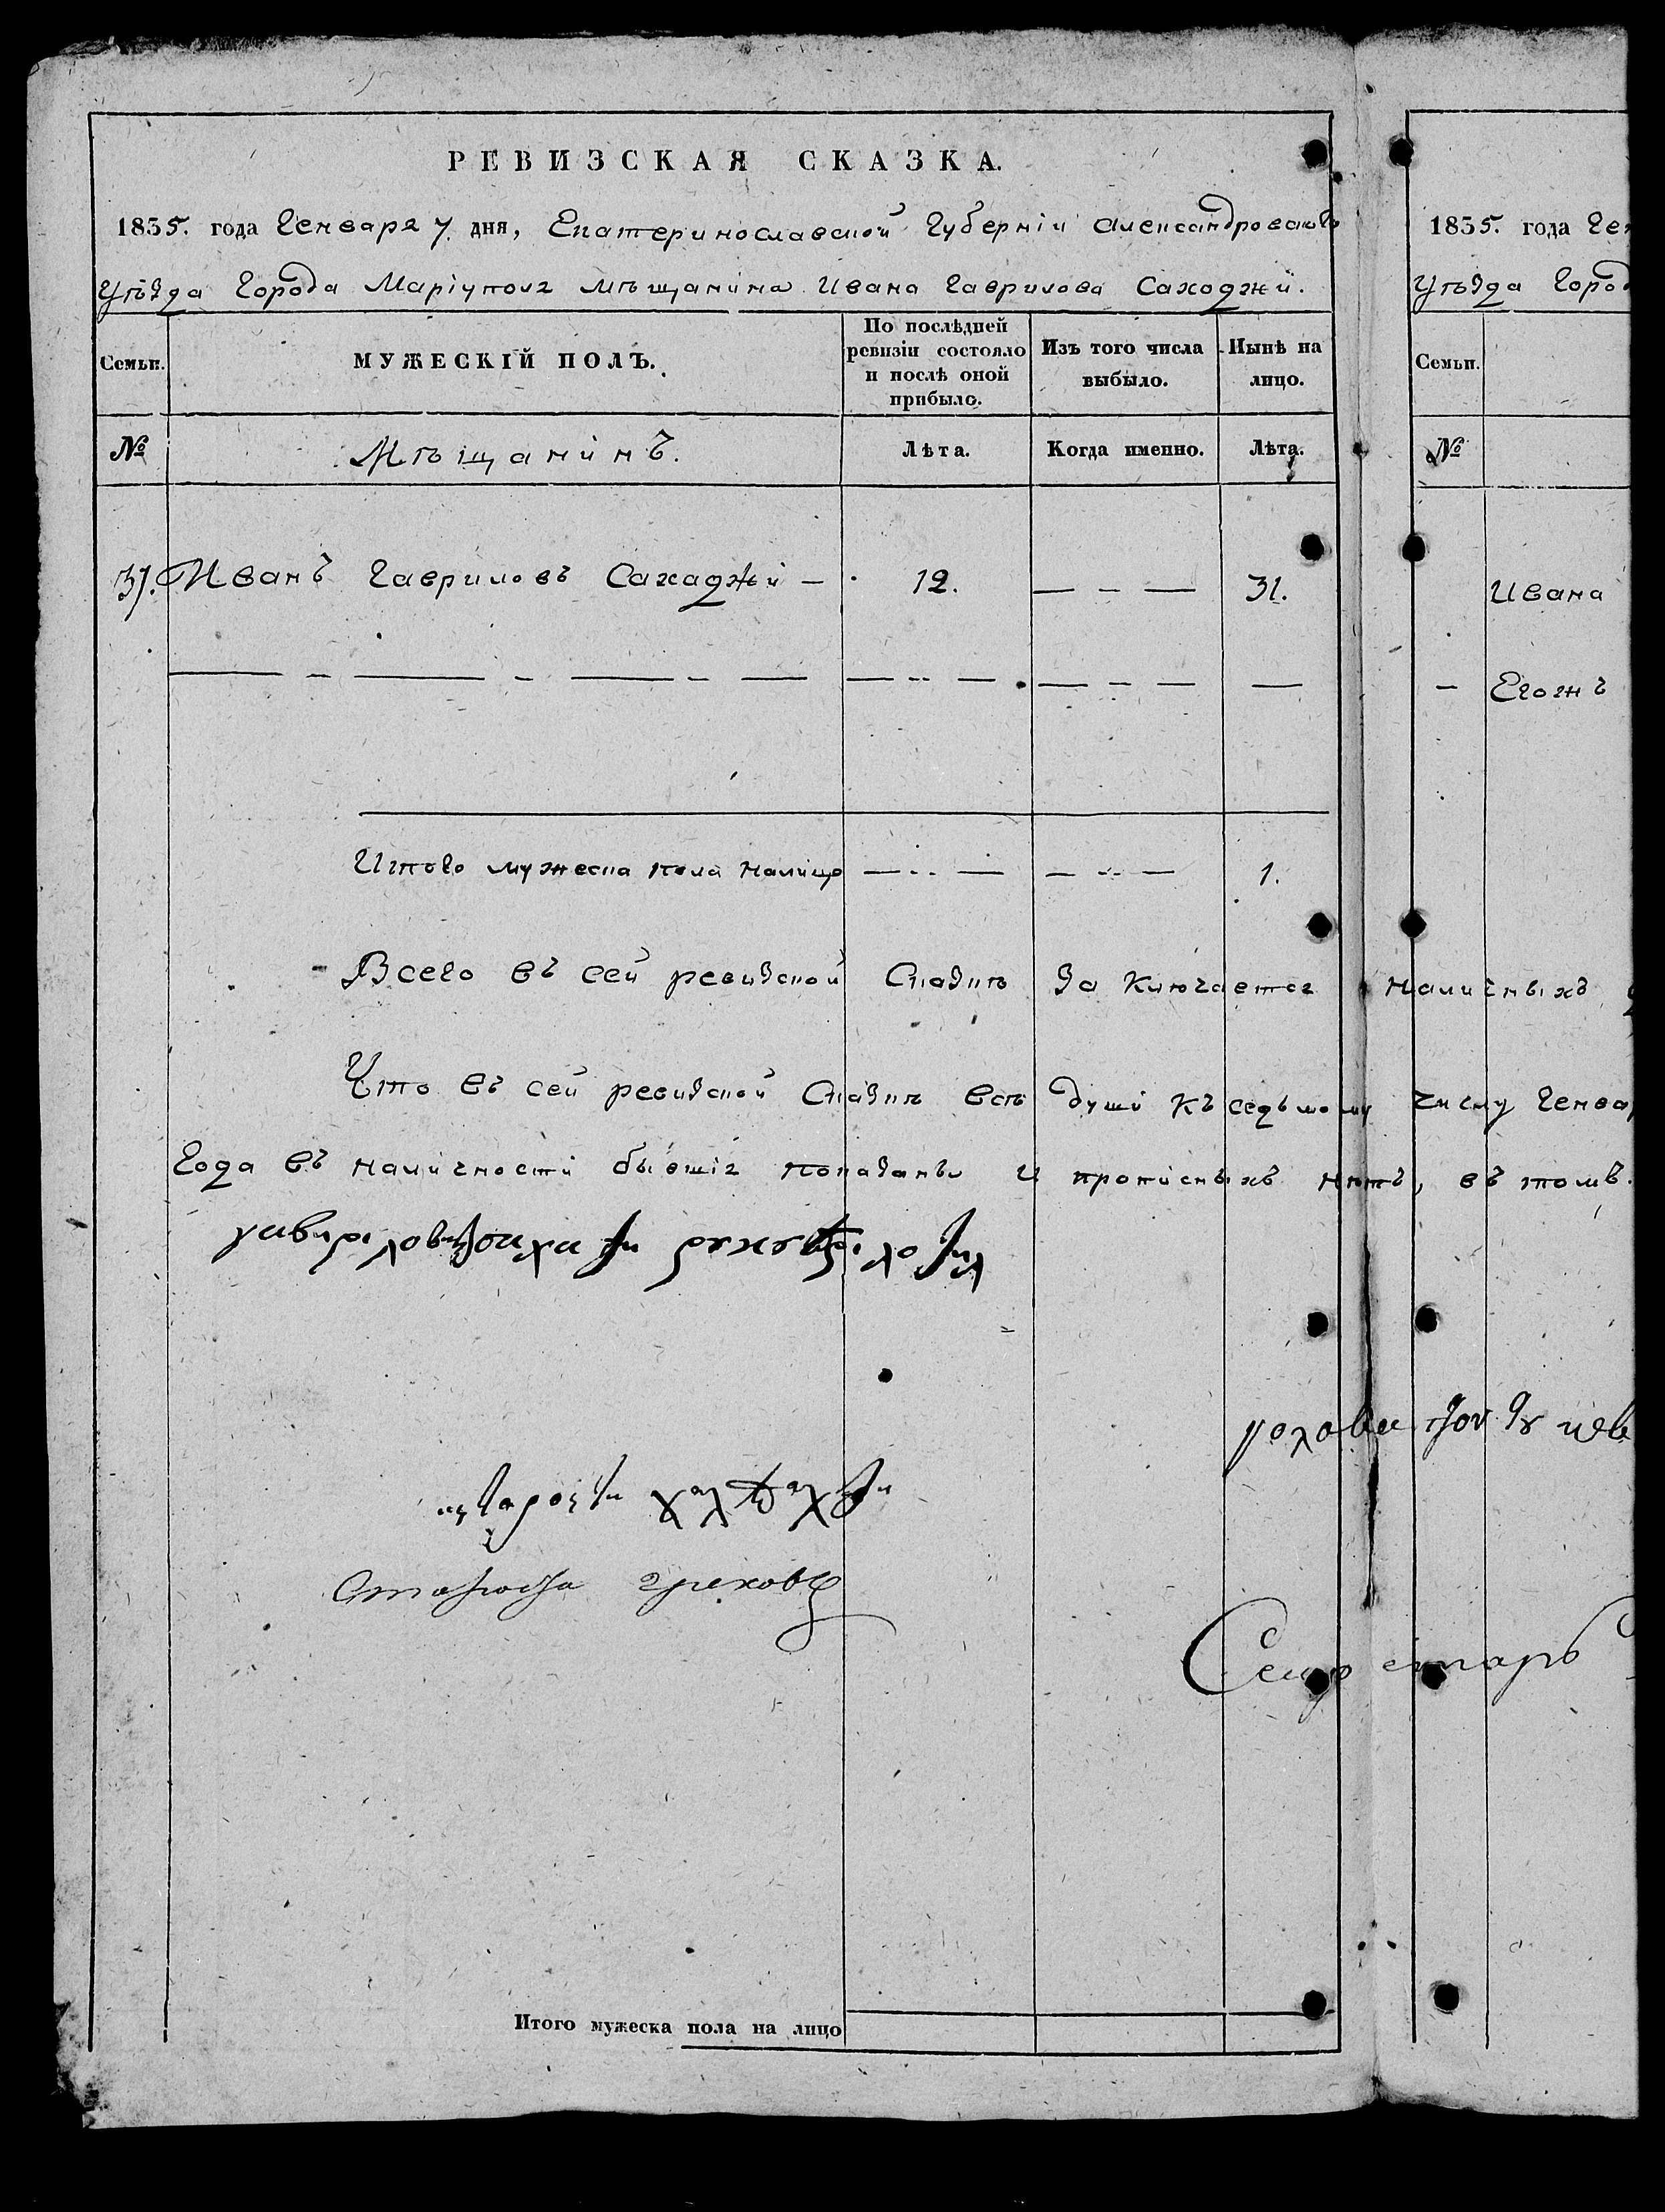 РЕВИЗСКАЯ СКАЗКА.
1835. года Генваря 7 дня, Екатеринославской Губерніи Александровскаго
Уѣзда Города Маріуполя мѣщанина Ивана Гаврилова Сахаджи.
Семьи.
МУЖЕСКІЙ ПОЛЪ.
По послѣдней ревизіи состояло и послѣ оной прибыло.
Изъ того числа выбыло.
Нынѣ на лицо.
№
Мѣщанинъ.
Лѣта.
Когда именно.
Лѣта.
37. Иванъ Гавриловъ Сахаджи — 12. — - — 31.
Итого мужеска пола налицо — — 1.
Всего въ сей ревизской Сказкѣ Заключается наличныхъ
Что въ сей ревизской Сказкѣ всѣ души къ седьмому числу Генва
Года въ наличности бывшія показаны и прописныхъ нѣтъ, въ томъ.
Староста Грековъ
Секретарь
Итого мужеска пола на лицо
1835. года Ген
Уѣзда Город
Семьи.
№
Ивана
— Егожъ